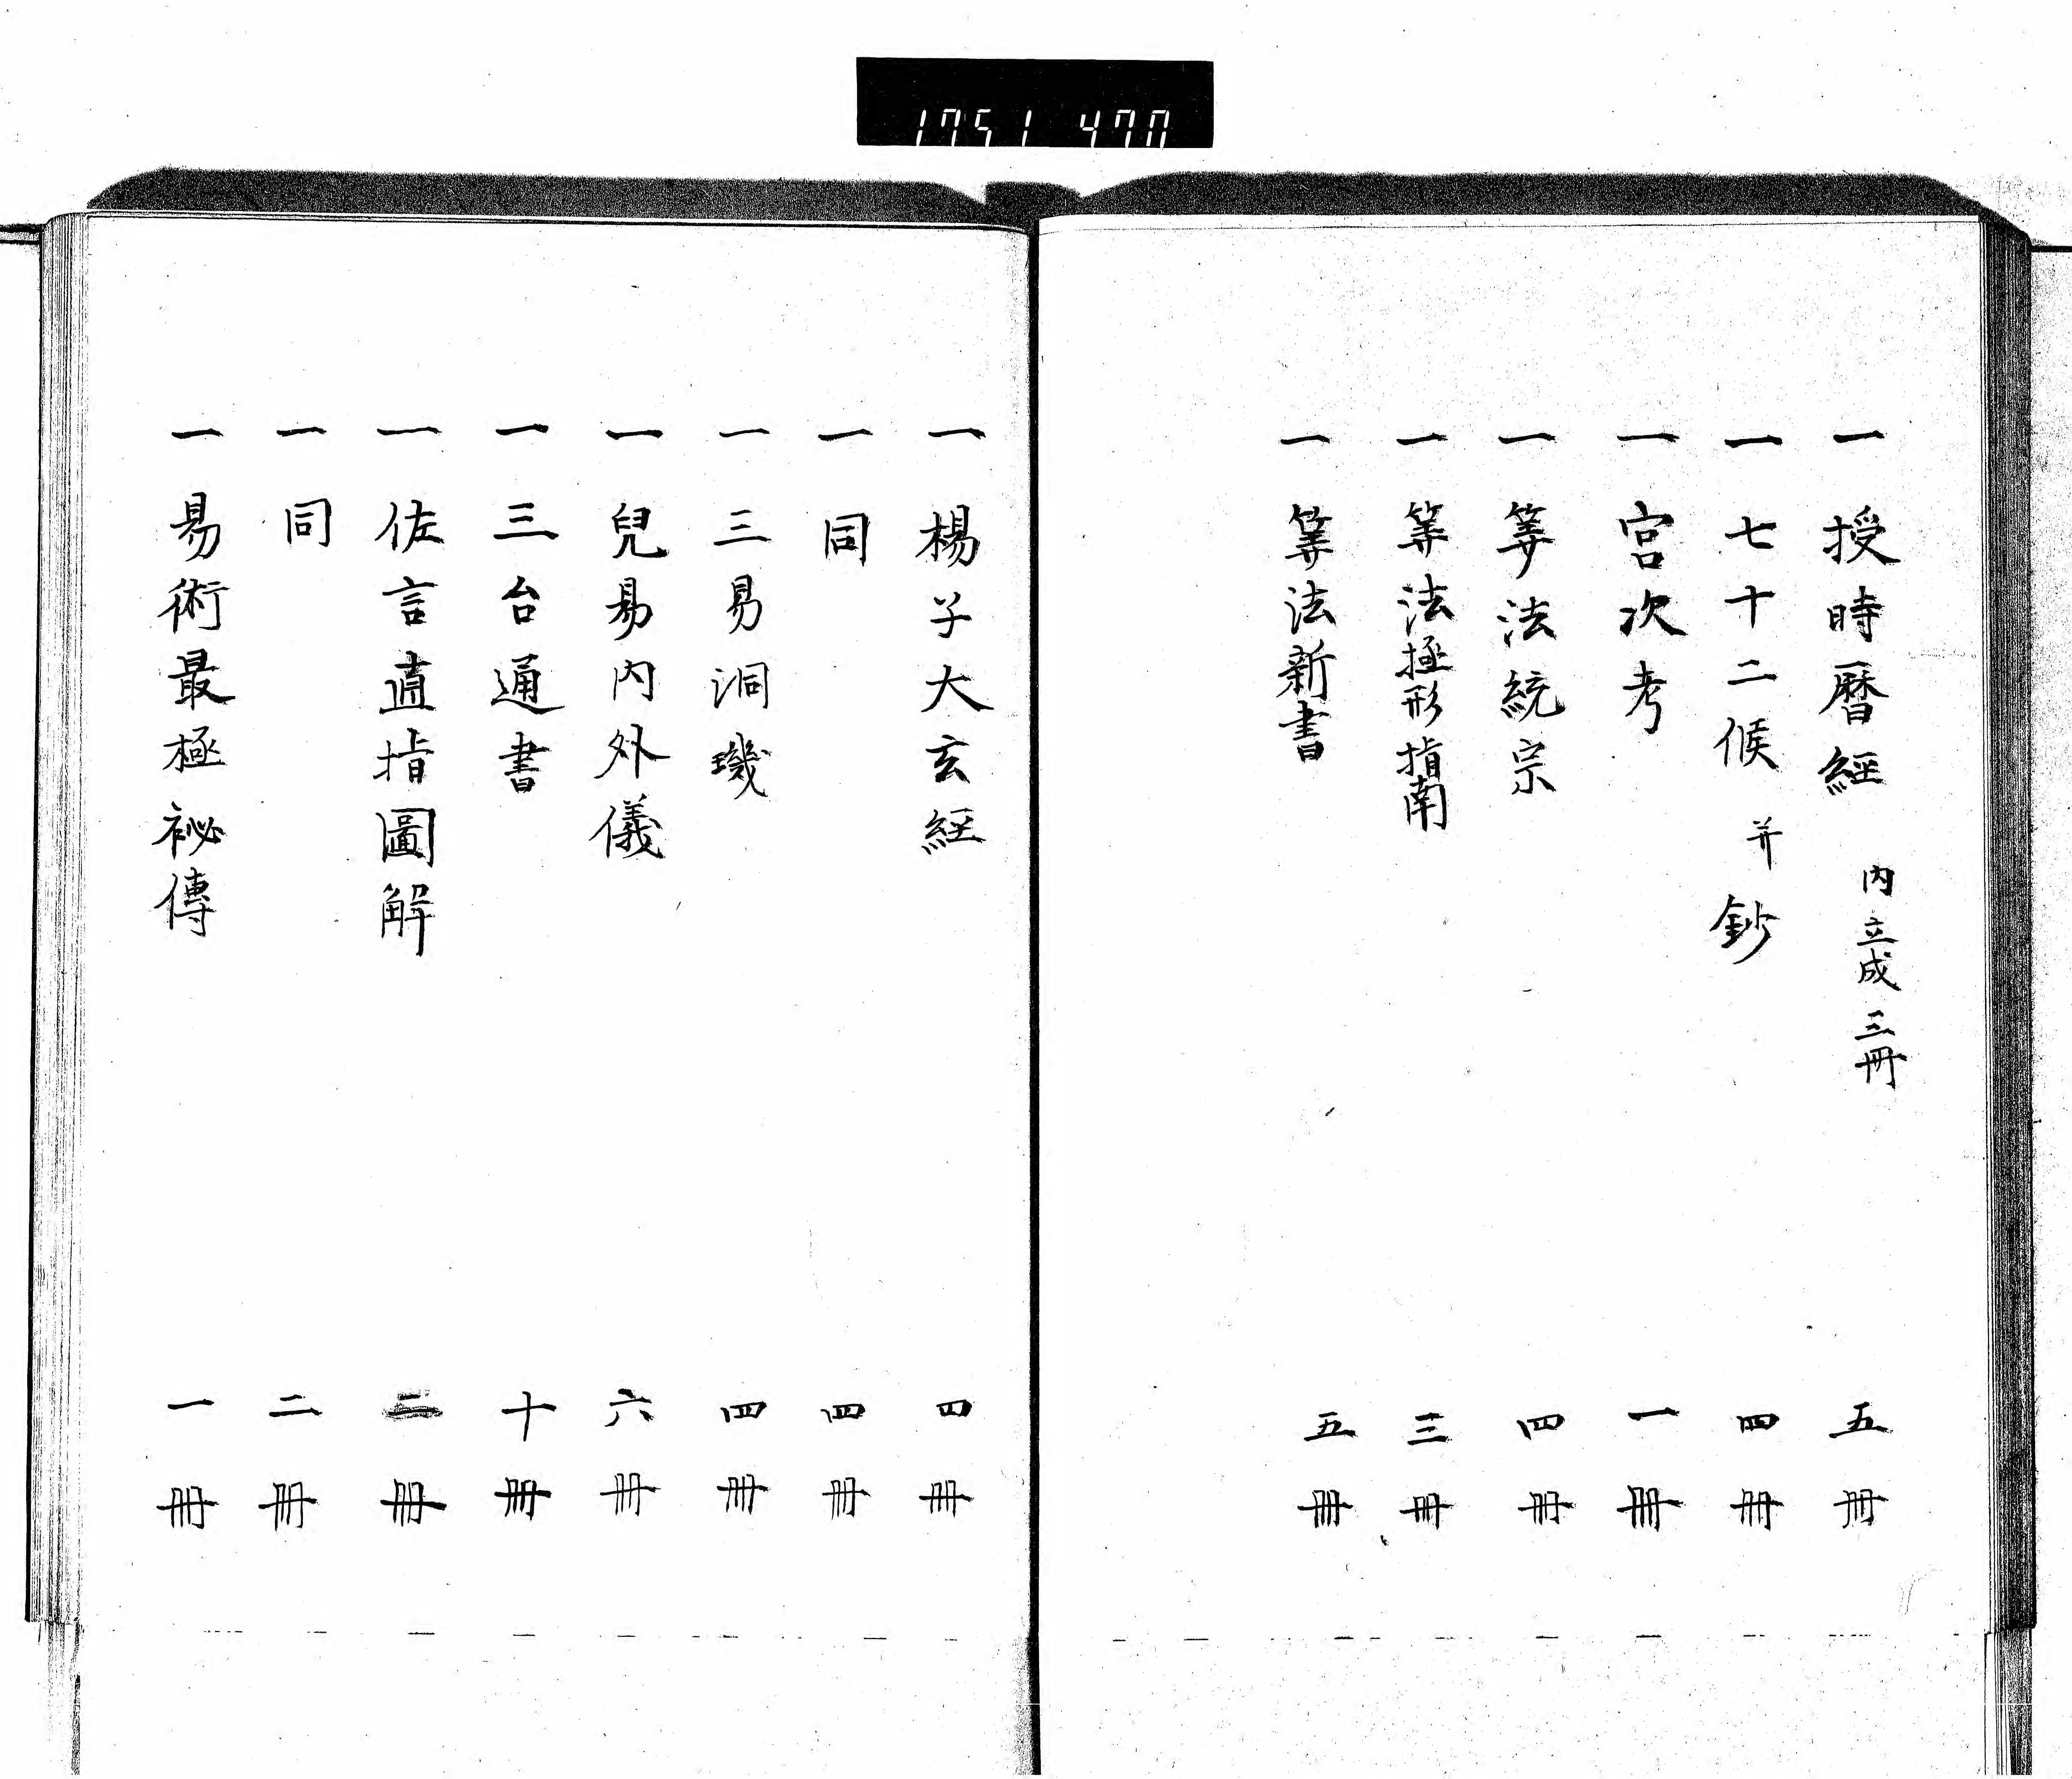 1751 470
一 授時暦經 内立成三冊 五冊
一 七十二候 并鈔 四冊
一 宮次考 一冊
一 筭法統宗 四冊
一 筭法極形指南 三冊
一 筭法新書 五冊
一 楊子大玄經 四冊
一 同 四冊
一 三易洞璣 四冊
一 兒易内外儀 六冊
一 三台通書 十冊
一 佐言直指圖解 二冊
一 同 二冊
一 易術最極祕傳 一冊